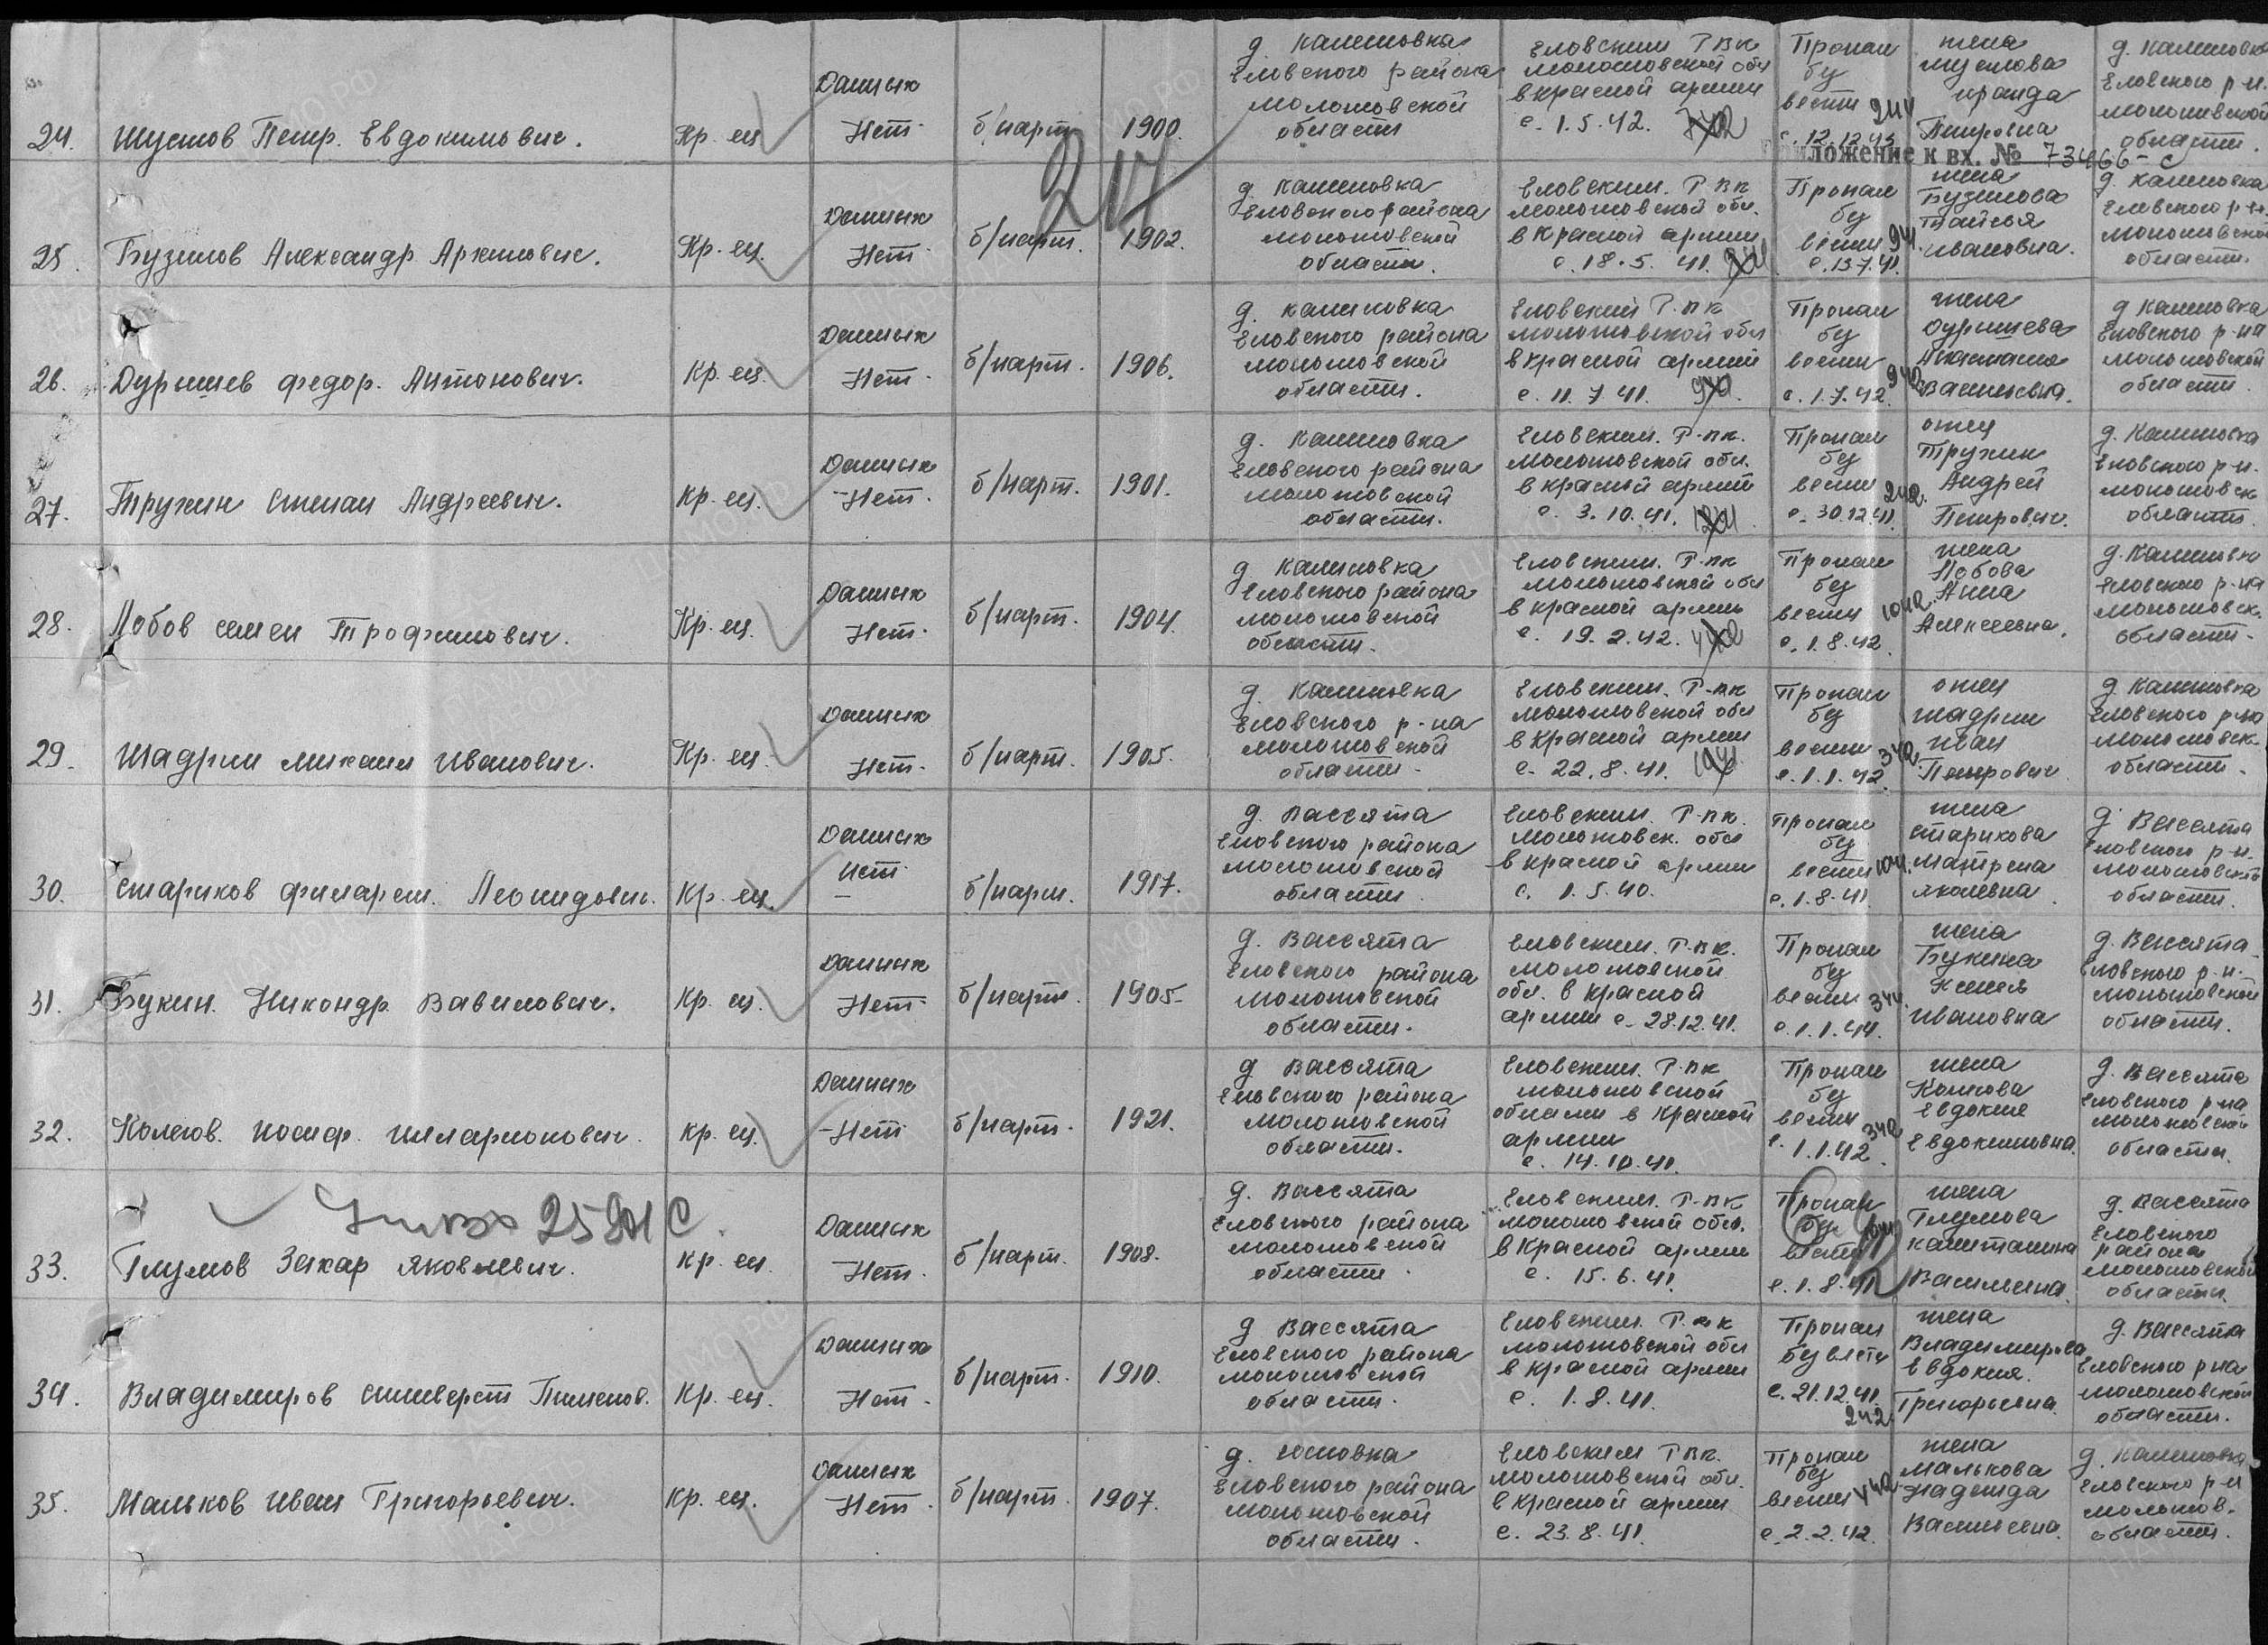 24. Шустов Петр. Евдокимович. Кр. ец Данных Нет. б/парт. 1900. д. Калиновка Еловского района Молотовской области Еловским РВК Молотовской обл в красной армии с. 1.5.42. Пропал без вести с. 12.12.43 жена Шустова Ираида Петровна д. Калиновка Еловского р-н. Молотовской области.
Приложение к вх. № 73466-с
217
25. Бузилов Александр Архипович. Кр. ец. Данных Нет. б/парт. 1902. д. Калиновка Еловского района Молотовской области. Еловским. РВК Молотовской обл. в Красной армии с. 18.5.41. Пропал без вести с. 13.7.41. жена Бузилова Таисья Ивановна. д. Калиновка Еловского р-н. Молотовской области.
26. Дурышев Федор. Антонович. Кр. ец. Данных Нет. б/парт. 1906. д. Калиновка Еловского района Молотовской области. Еловский РВК Молотовской обл в красной армии с. 11.7.41. Пропал без вести с. 1.7.42. жена Дурышева Анастасия Васильевна. д. Калиновка Еловского р-на Молотовской области.
27. Трухин Степан Андреевич. Кр. ец. Данных Нет. б/парт. 1901. д. Калиновка Еловского района Молотовской области. Еловским. РВК. Молотовской обл. в красной армии с. 3.10.41. Пропал без вести с. 30.12.41. отец Трухин Андрей Петрович. д. Калиновка Еловского р-н. Молотовск области.
28. Лобов Семен Трофимович. Кр. ец. Данных Нет. б/парт. 1904. д. Калиновка Еловского района Молотовской области. Еловским. РВК Молотовской обл в красной армии с. 19.2.42. Пропал без вести с. 1.8.42. жена Лобова Анна Алексеевна. д. Калиновка Еловского р-на Молотовск. области.
29. Шадрин Михаил Иванович. Кр. ец. Данных Нет. б/парт. 1905. д. Калиновка Еловского р-на Молотовской области. Еловским. РВК Молотовской обл в красной армии с. 22.8.41. Пропал без вести с. 1.1.42. отец Шадрин Иван Петрович д. Калиновка Еловского р-на Молотовск. области.
30. Стариков Филарет. Леонидович. Кр. ец. Данных Нет. б/парт. 1917. д. Вассята Еловского района Молотовской области Еловским. РВК. Молотовск. обл в красной армии с. 1.5.40. Пропал без вести с. 1.8.41. жена Старикова Матрена Яковлевна. д. Вассята Еловского р-н. Молотовской области.
31. Букин. Никандр. Вавилович. Кр. ец. Данных Нет. б/парт. 1905. д. Вассята Еловского района Молотовской области. Еловским. РВК. Молотовской обл. в красной армии с. 28.12.41. Пропал без вести с. 1.1.44. жена Букина Ксенья Ивановна д. Вассята Еловского р-н. Молотовской области.
32. Колегов. Иосиф. Илларионович. Кр. ец. Данных Нет. б/парт. 1921. д. Вассята Еловского района Молотовской области. Еловским. РВК Молотовской области в красной армии с. 14.10.41. Пропал без вести с. 1.1.42. жена Евдокия Евдокимовна. д. Вассята Еловского р-на Молотовской области.
25901с
33. Глумов Захар Яковлевич. Кр. ец. Данных Нет. б/парт. 1908. д. Вассята Еловского района Молотовской области. Еловским. РВК Молотовской обл. в красной армии с. 15.6.41. Пропал без вести с. 1.8.41 жена Глумова Васильевна. д. Вассята Еловского района Молотовской области.
34. Владимиров Силиверст Пименов. Кр. ец. Данных Нет. б/парт. 1910. д. Вассята Еловского района Молотовской области. Еловским. РВК Молотовской обл в красной армии с. 1.8.41. Пропал без вести с. 21.12.41. жена Владимирова Евдокия. Григорьевна. д. Вассята Еловского р-на Молотовской области.
35. Мальков Иван Григорьевич. Кр. ец. Данных Нет. б/парт. 1907. д. Еловского района Молотовской области. Еловским РВК. Молотовской обл. в красной армии с. 23.8.41. Пропал без вести с. 2.2.42. жена Малькова Надежда Васильевна. д. Калиновка Еловского р-н Молотов. области.